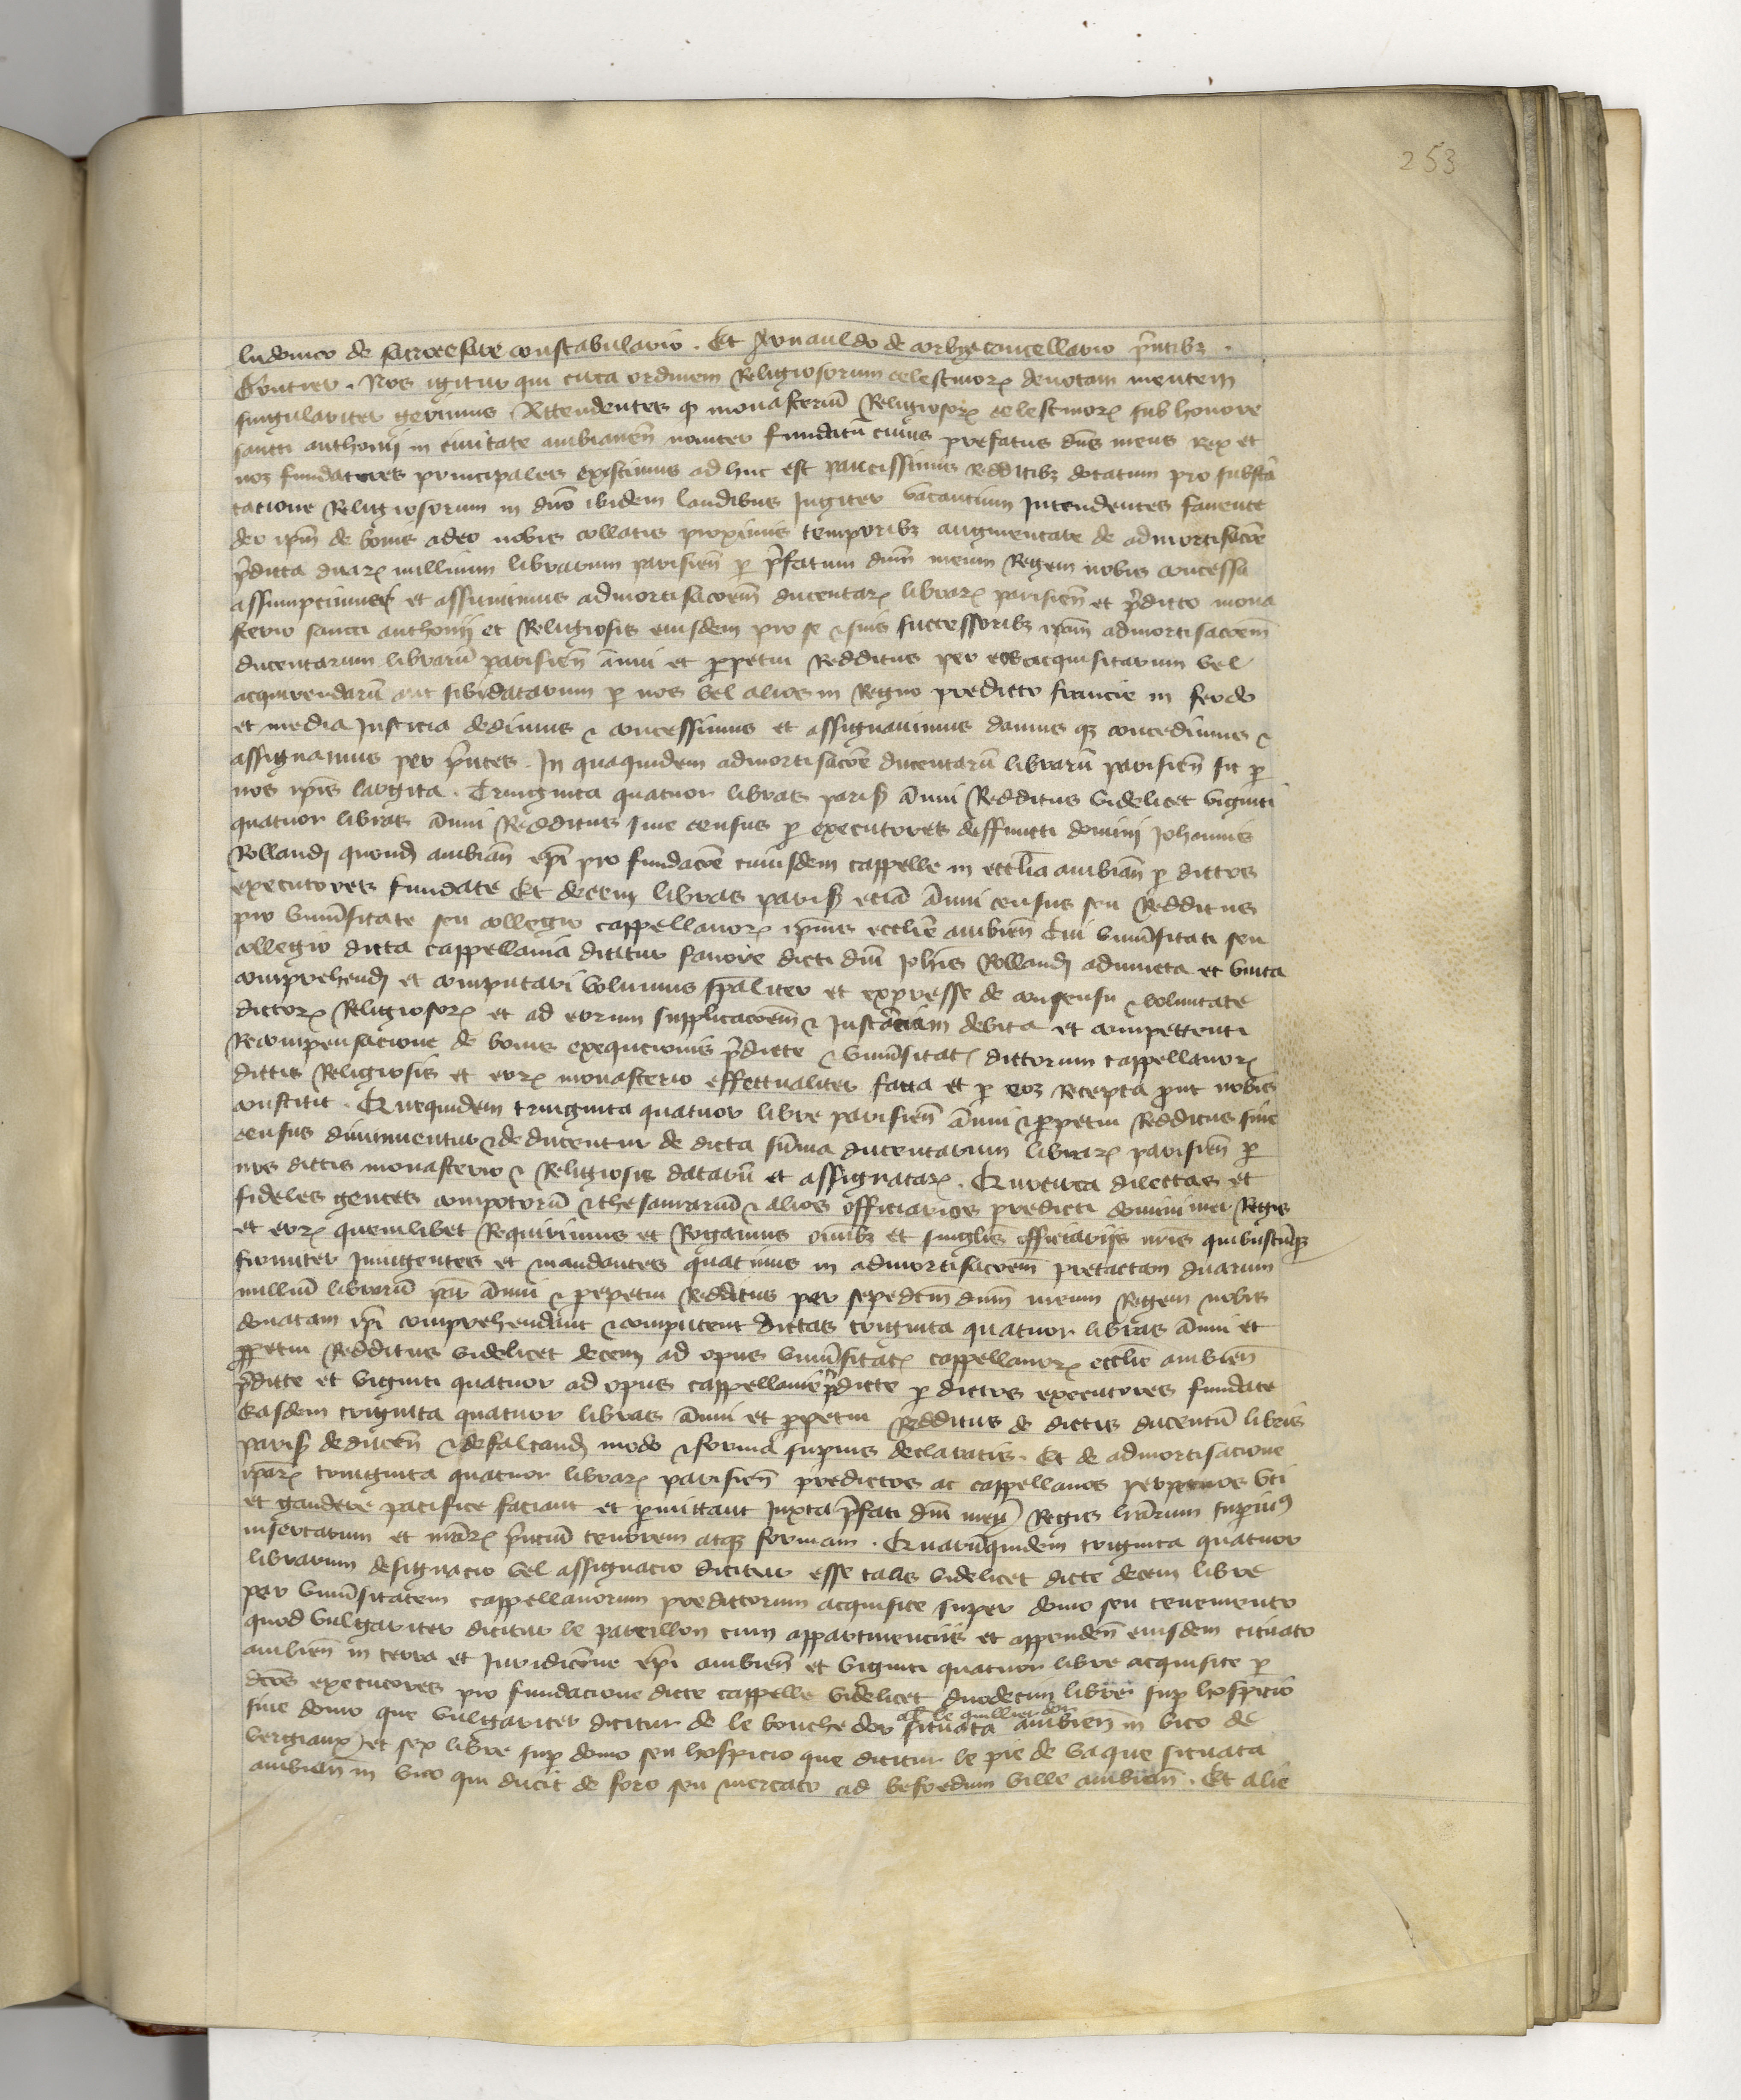 253
ludouico de sacrocesare constabulario . Et Arnauldo de corbya cancellario p̄ntibȝ .
Contier . Nos igitur qui circa ordinem Religiosorum celestinorꝝ deuotam mentem
singulariter gerimus Attendentes ꝙ monasteriū Religiosorꝝ celestinorꝝ sub honore
sancti anthonij in ciuitate ambianeñ nouiter fundatū cuius prefatus dn̄s meus rex et
nos fundatores principales existimus ad huc est paucissimis redditibȝ dotatum pro sustē
tacione Religiosorum in dn̄o ibidem laudibus Jugiter vacantium Intendentes fauente
deo ip̄m de bonis a deo nobis collatis proximis temporibȝ augmentare de admortisacōe
p̄dicta duarꝝ millium librarum parisieñ ꝑ p̄fatum dn̄m meum Regem nobis concessa
assumpsimus et assumimus admortisacōem ducentarꝝ librarꝝ parisieñ et p̄dicto mona
sterio sancti anthonij et Religiosis eiusdem pro se ⁊ suis successoribȝ ip̄am admortisacōem
ducentarum librarū parisieñ ānui et ꝑpetui Redditus per eos acquisitarum vel
acquirendarū aut sibi datarum ꝑ nos vel alios in Regno predicto francie in feodo
et media Justicia dedimus ⁊ concessimus et assignauimus damus qȝ concedimus ⁊
assignamus per p̄ntes . In quaquidem admortisacōe ducentarū librarū parisieñ sit ꝑ
nos ip̄is largita . Tringinta quatuor libras paris ānui Redditus videlicet viginti
quatuor libras ānui Redditus siue census ꝑ executores deffuncti domini Johannis
Rollandj quondȝ ambiañ ep̄i pro fundacōe cuiusdem cappelle in eccl̄ia ambiañ ꝑ dictos
executores fundate Et decem libras paris eciā ānui census seu Redditus
pro vniūsitate seu collegio cappellanorꝝ ip̄ius eccl̄ie ambieñ Cui vniūsitati seu
collegio dicta cappellania dicitur fauore dicti dn̄i Joh̄is Rollandj adiuncta et vnita
comprehendj et computari volumus sp̄aliter et expresse de consensu ⁊ voluntate
dictorꝝ Religiosorꝝ et ad eorum supplicacōem ⁊ Instāciam debita et competenti
Recompensacione de bonis exequcionis p̄dicte ⁊ vniūsitatꝭ dictorum cappellanorꝝ
dictis Religiosis et eorꝝ monasterio effectualiter facta et ꝑ eos recepta ꝓut nobis
constitit . Quequidem tringinta quatuor libre parisieñ ānui ⁊ ꝑpetui Redditus siue
census diminuentur ⁊ deducentur de dicta sūma ducentarum librarꝝ parisieñ ꝑ
nos dictis monasterio ⁊ Religiosis datarū et assignatarꝝ . Quocirca dilectas et
fideles gentes compotorū ⁊ thesaurariū ⁊ alios officiarios predicti domini mei Regis
et eorꝝ quemlibet Requirimus et Rogamus oīnibȝ et singlis officiarijs nr̄is quibuscūqȝ
firmiter Iniungentes et mandantes quatinus in admortisacōem pretactam duarum
milliū librarū par̄ ānui ⁊ ꝑpetui redditus per sepedc̄m dn̄m meum Regem nobis
donatam ip̄i comprehendant ⁊ computent dictas triginta quatuor libras ānui et
ꝑpetui Redditus videlicet decem ad opus vniūsitatꝭ cappellanorꝝ eccl̄ie ambieñ
p̄dicte et viginti quatuor ad opus cappellanie p̄dicte ꝑ dictos executores fundate
Easdem triginta quatuor libras ānui et ꝑpetui Redditus de dictis ducentū libris
paris deduceñ ⁊ defalcandȝ modo ⁊ forma supius declaratis . Et de admortisacione
ip̄arꝝ tringinta quatuor librarꝝ parisieñ predictos ac cappellanos perpetuos vti
et gaudere pacifice faciant et ꝑmittant Juxta p̄fati dn̄i mei Regis lr̄arum supius
insertarum et nr̄arꝝ p̄ntiū tenorem atqȝ formam . Quarūquidem triginta quatuor
librarum designacio vel assignacio dicitur esse talis videlicet dicte decem libre
per vniūsitatem cappellanorum predictorum acquisite super domo seu tenemento
quod vulgariter dicitur le paveillon cum appartinenciis et appendeñ eiusdem cituato
ambieñ in terra et Juridicōne ep̄i ambieñ et viginti quatuor libre acquisite ꝑ
dc̄os executores pro fundacione dicte cappelle videlicet duodecim libre sup hospicio
siue domo que vulgariter dicitur de le bouche dor al le quillier dor situata ambieñ in vico de
vergiaux et sex libre sup domo seu hospicio que dicitur le pie de vaque situata
ambiañ in vico qui ducit de foro seu mercato ad befredum ville ambiañ . Et alie